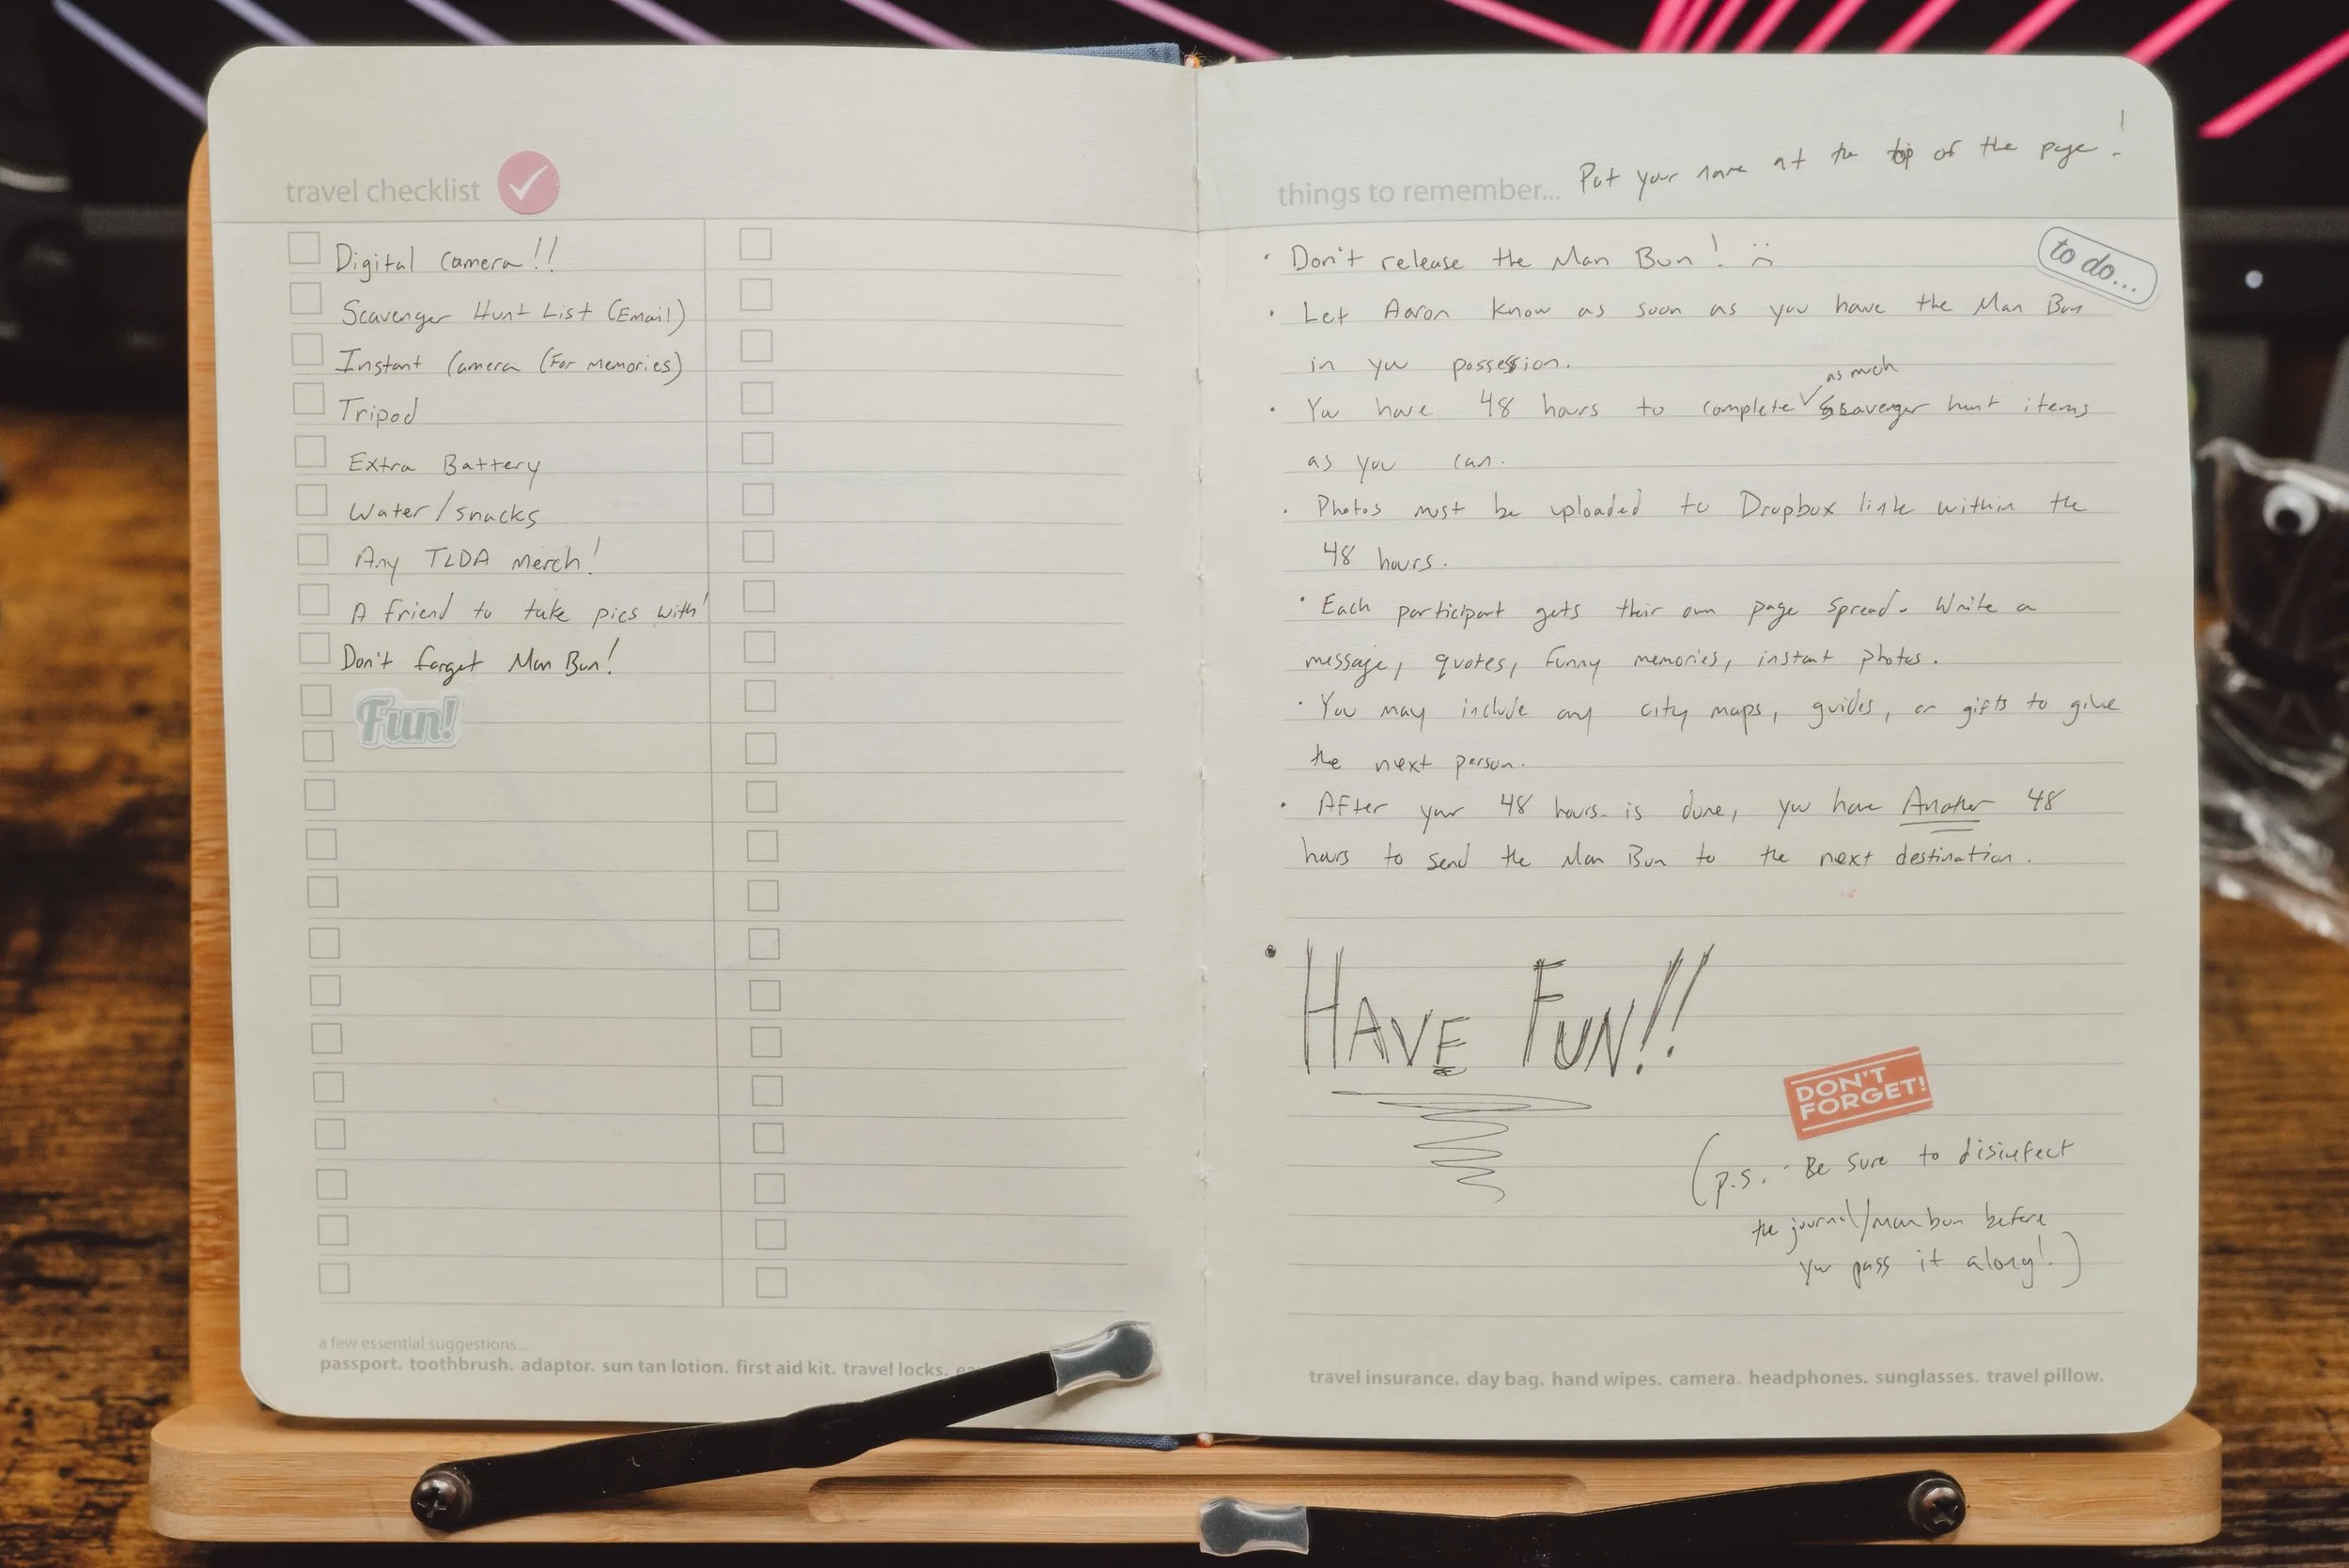 travel checklist
Digital Camera!!
Scavenger Hunt List (Email)
Instant Camera (For Memories)
Tripod
Extra Battery
Water/snacks
Any TLDA merch!
A friend to take pics with!
Don't forget Man Bun!
Fun!
a few essential suggestions...
passport. toothbrush. adaptor. sun tan lotion. first aid kit. travel locks.
things to remember... Put your name at the top of the page!
to do...
· Don't release the Man Bun! :(
· Let Aaron know as soon as you have the Man Bun
in you possession.
as much
· You have 48 hours to complete scavenger hunt items
as you can.
· Photos must be uploaded to Dropbox link within the
48 hours.
· Each participant gets their own page spread. Write a
message, quotes, funny memories, instant photos.
· You may include any city maps, guides, or gifts to give
the next person.
· After your 48 hours is done, you have Another 48
hours to send the Man Bun to the next destination.
· HAVE FUN!!
DON'T
FORGET!
(p.s. - Be sure to disinfect
the journal/man bun before
you pass it along!)
travel insurance. day bag. hand wipes. camera. headphones. sunglasses. travel pillow.